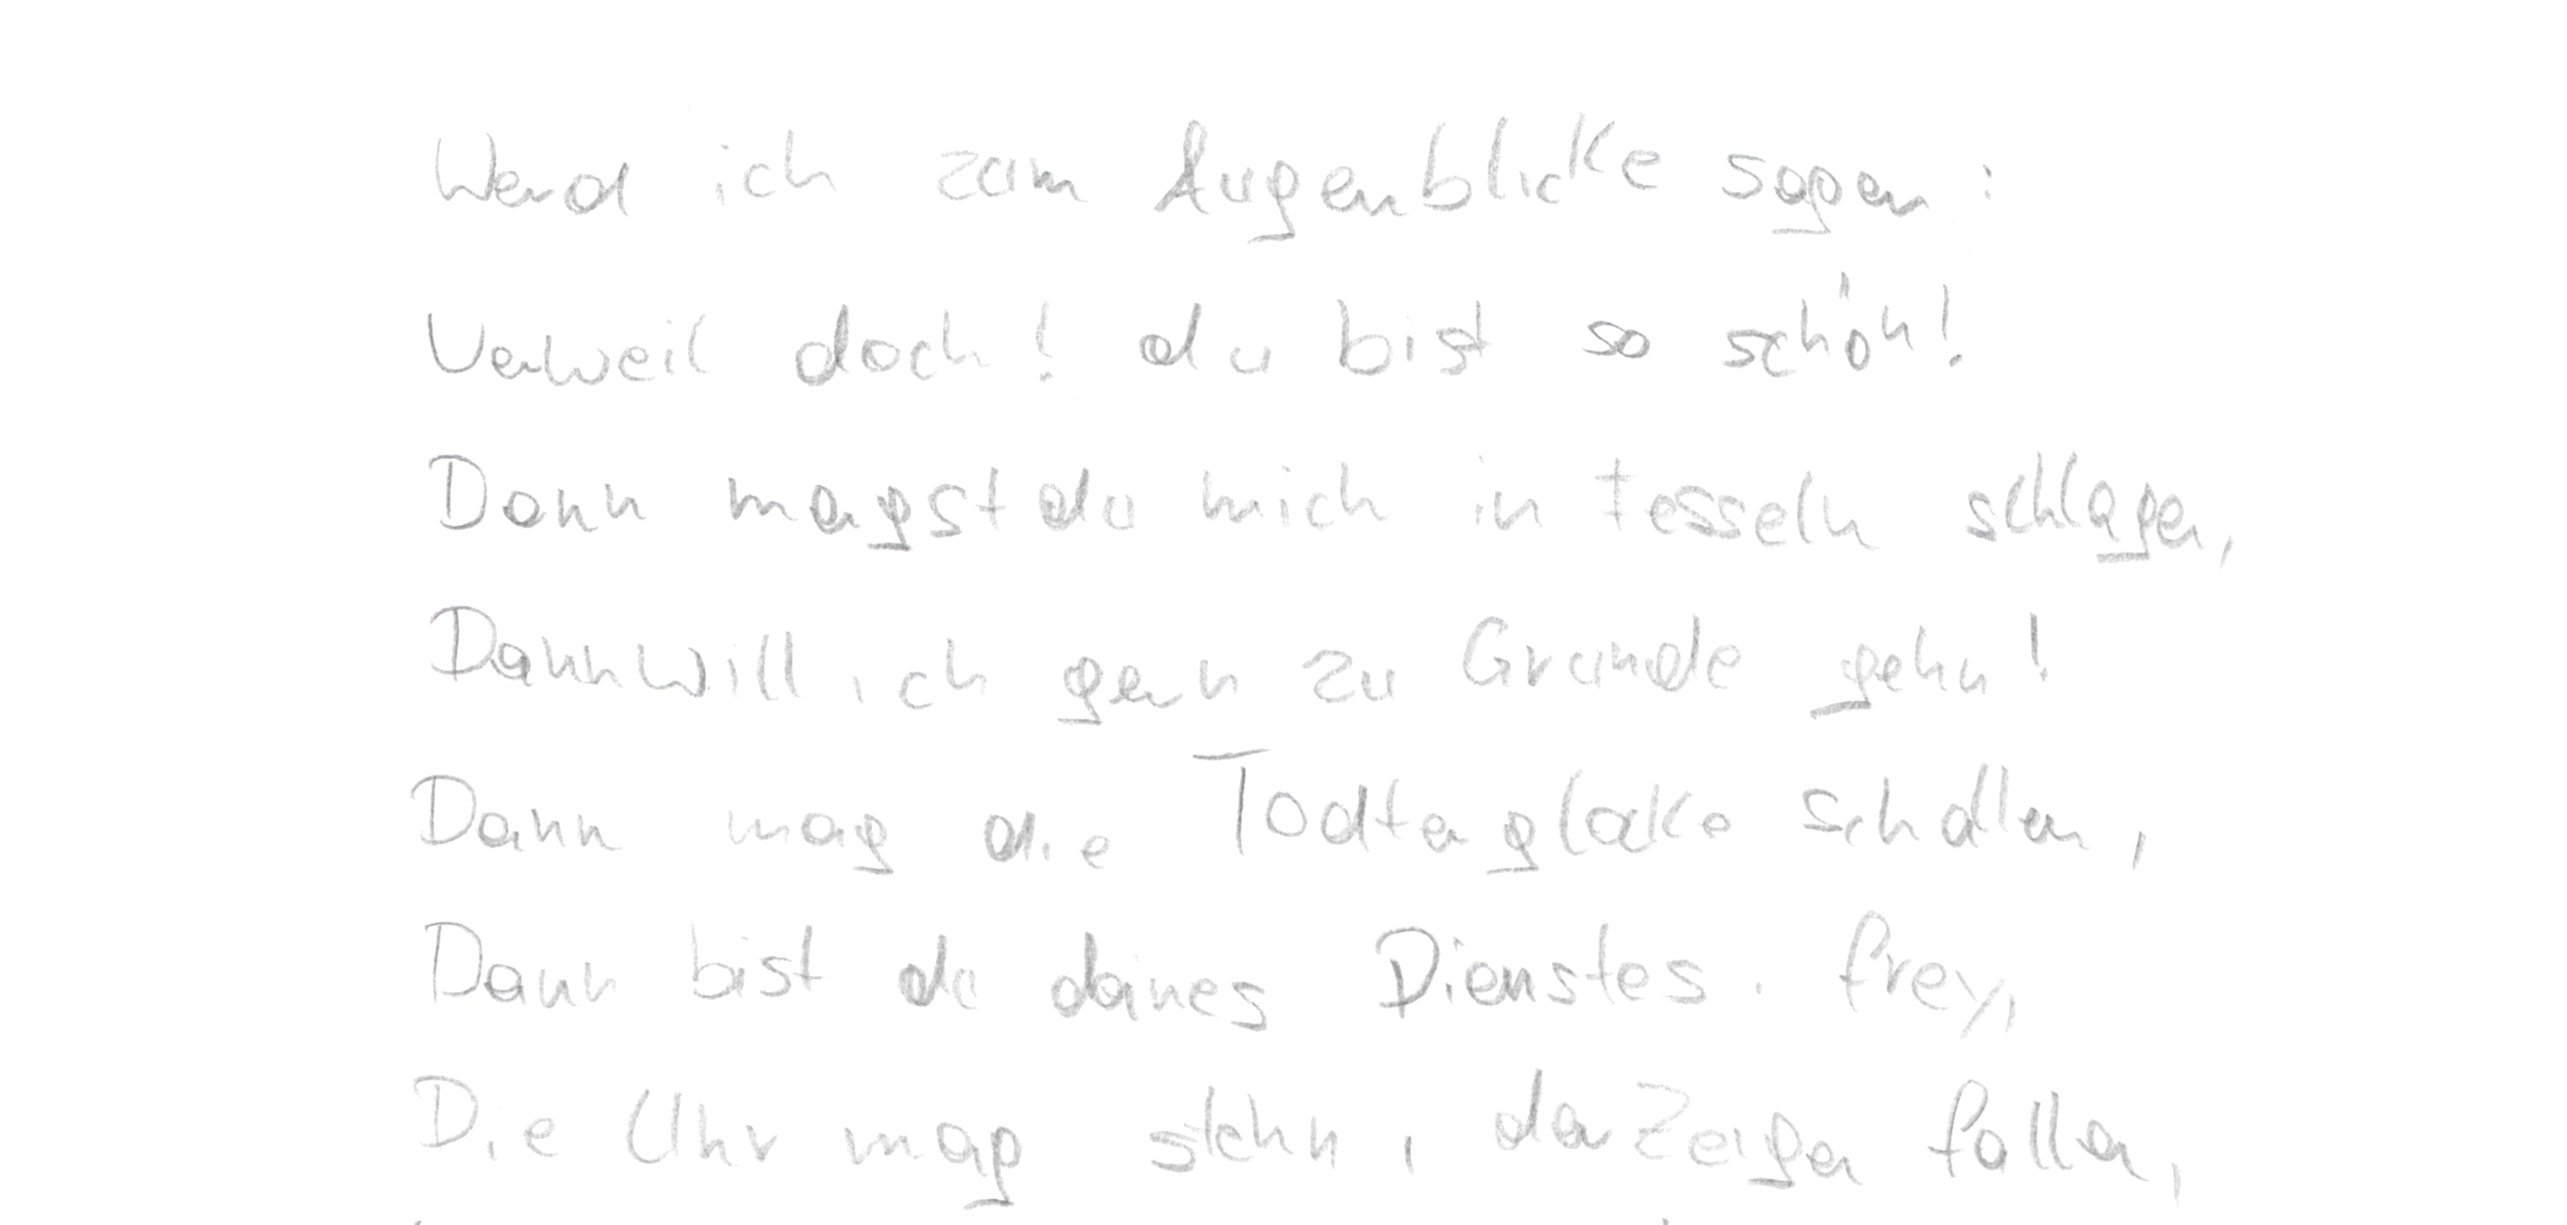 Werd ich zum Augenblicke sagen:
Verweil doch! du bist so schön!
Dann magst du mich in Fesseln schlagen,
Dann will ich gern zu Grunde gehn!
Dann mag die Todtenglocke schallen,
Dann bist du deines Dienstes frey,
Die Uhr mag stehn, der Zeiger fallen,